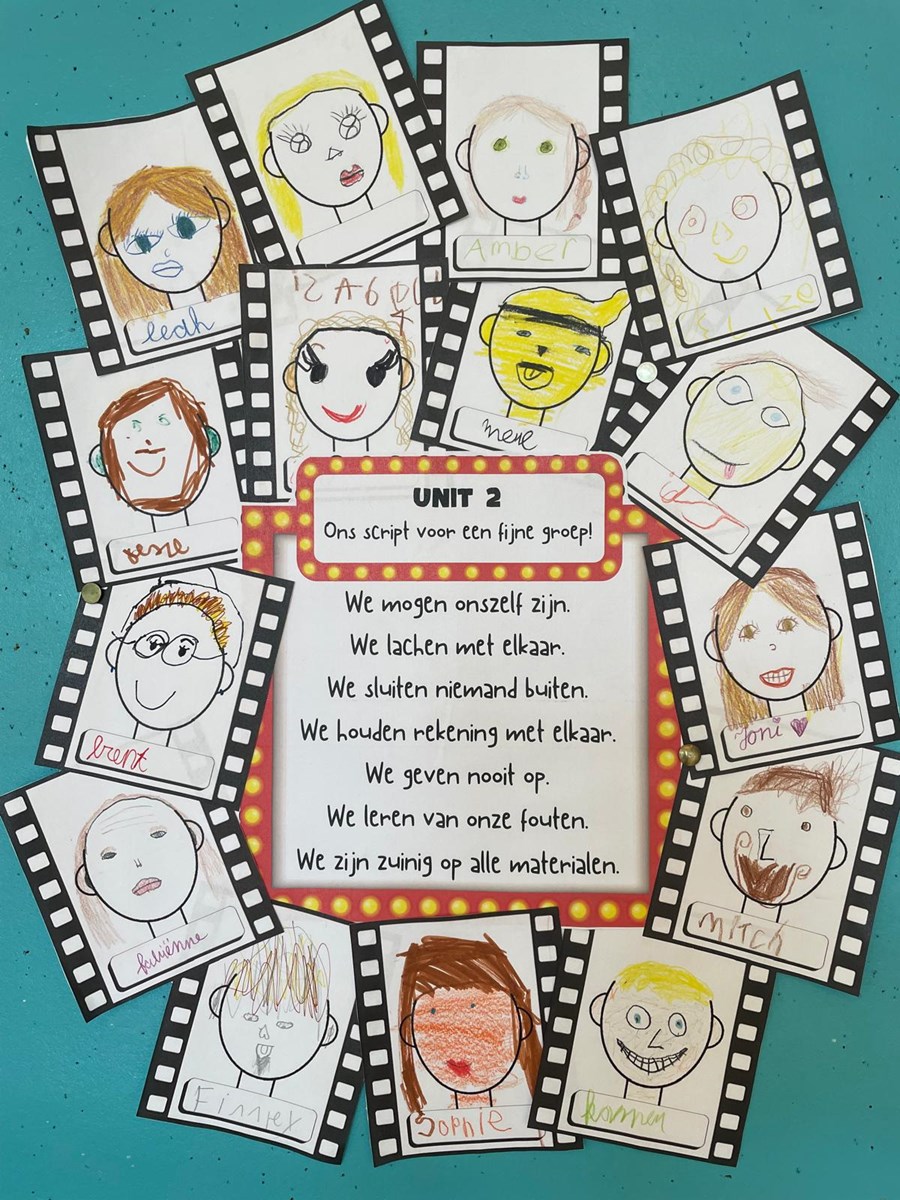 leah
Amber
ELIZE
ISABELLA
merel
jesse
UNIT 2
Ons script voor een fijne groep!
We mogen onszelf zijn.
We lachen met elkaar.
We sluiten niemand buiten.
We houden rekening met elkaar.
We geven nooit op.
We leren van onze fouten.
We zijn zuinig op alle materialen.
brent
Joni
fabiënne
Mitch
Finney
Sophie